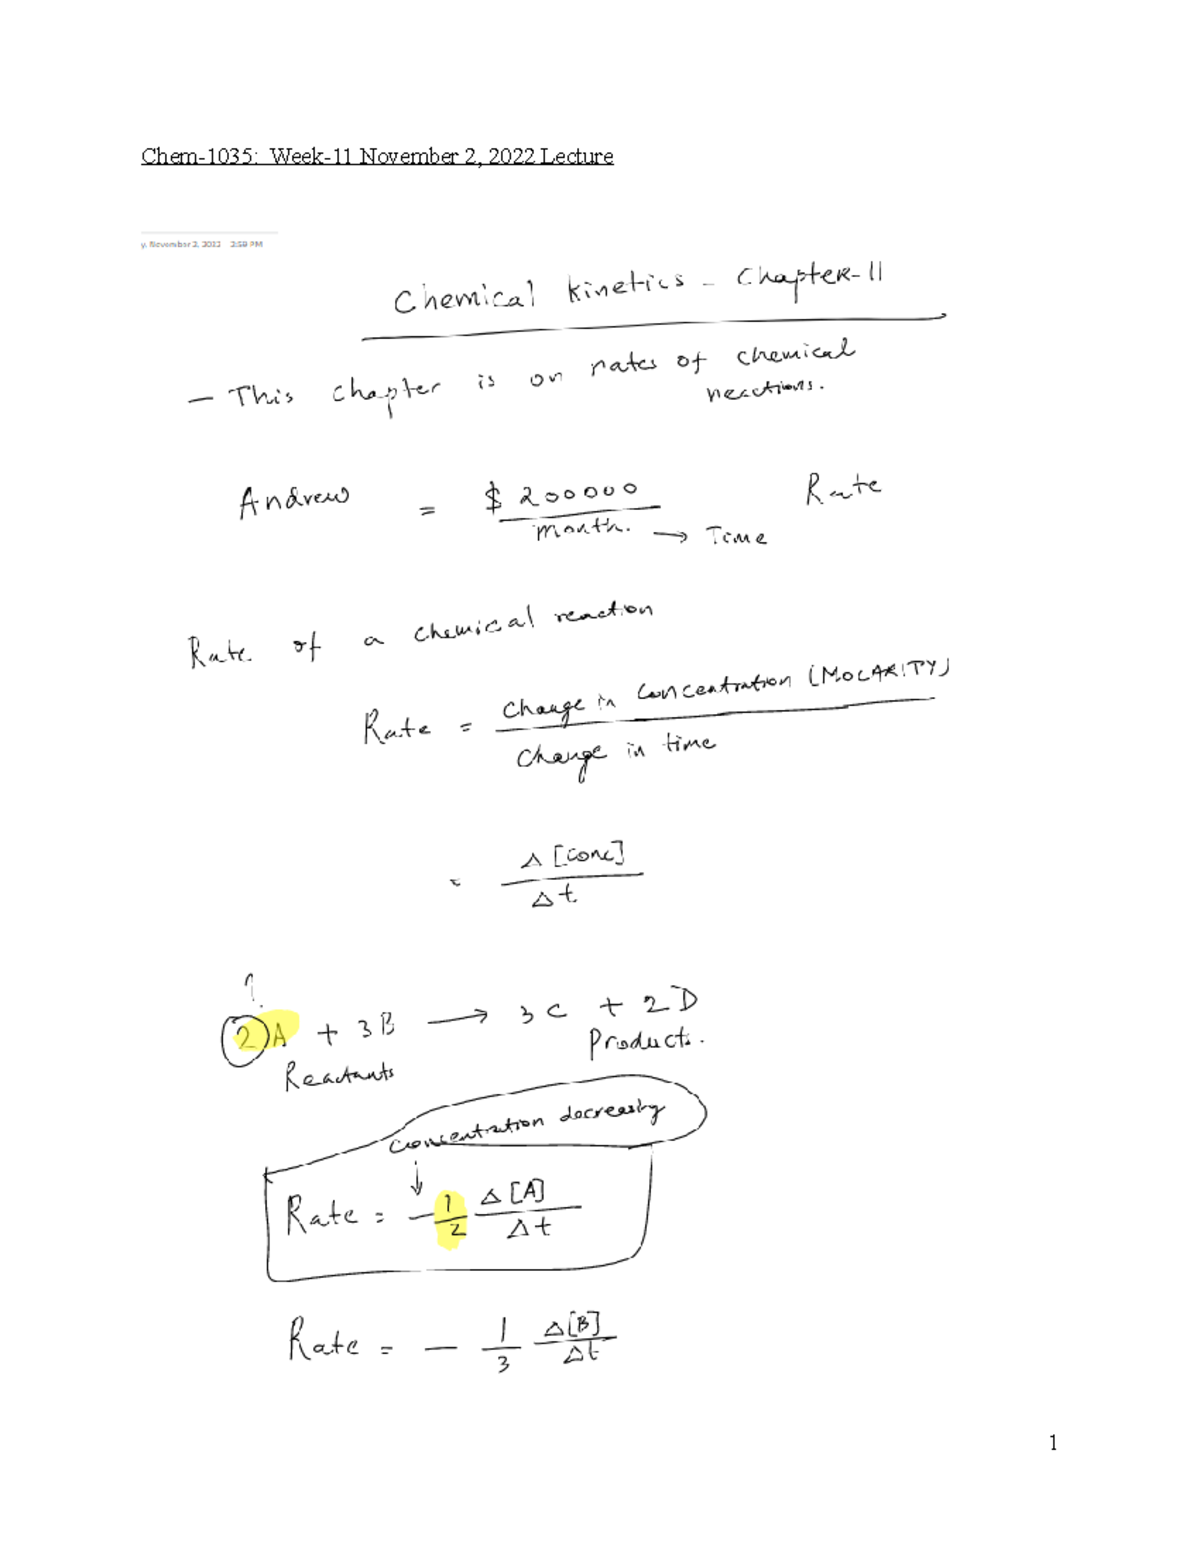 Chem-1035: Week-11 November 2, 2022 Lecture
y, November 2, 2022 2:59 PM
Chemical Kinetics - Chapter-11
- This chapter is on rates of chemical
reactions.
Andrew = $ 200000 Rate
month. → Time
Rate of a chemical reaction
Rate = Change in Concentration (MOLARITY)
Change in time
= Δ [conc]
Δt
?
2A + 3B → 3C + 2D
Reactants Products.
Concentration decreasing
↓
Rate = - 1/2 Δ[A]/Δt
Rate = - 1/3 Δ[B]/Δt
1